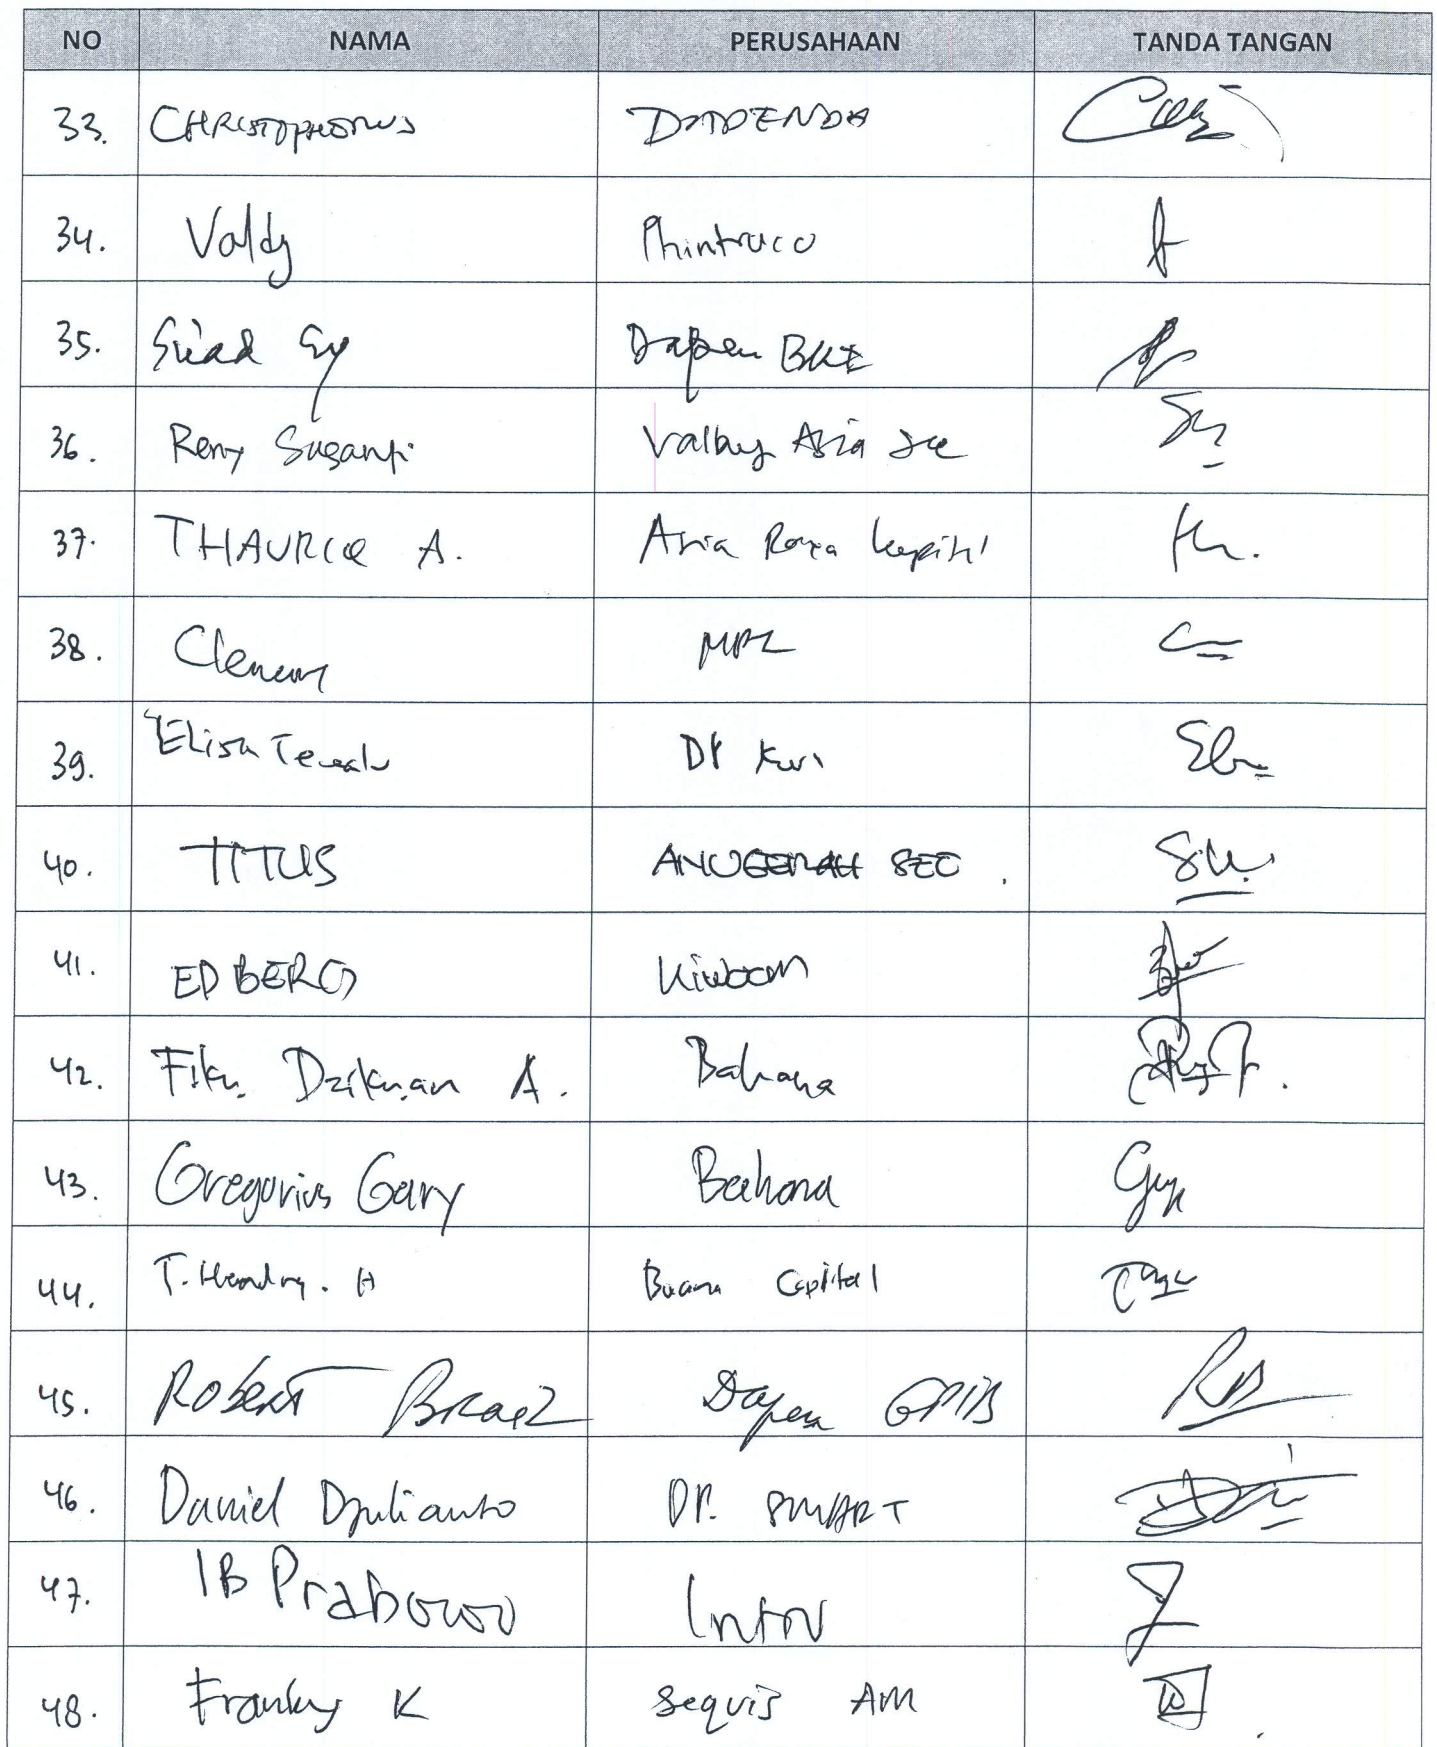 NO NAMA PERUSAHAAN TANDA TANGAN
33. CHRISTOPHORUS DAPENDA
34. Valdy Phintraco
35. Dapen
36. Reny Susanti Valbury Asia Sec
37. THAURICQ A. Asia Raya Kapital
38. Clemens
39. Elisa DP
40. TITUS ANUGERAH SEC.
41. EDBERG Kiwoom
42. A. Bahana
43. Gregorius Gary Bahana
44. T. Hendry. H Buana Capital
45. Robert Dapen GPIB
46. Daniel Djulianto DP. SMART
47. IB Prabowo
48. Franky K Sequis AM